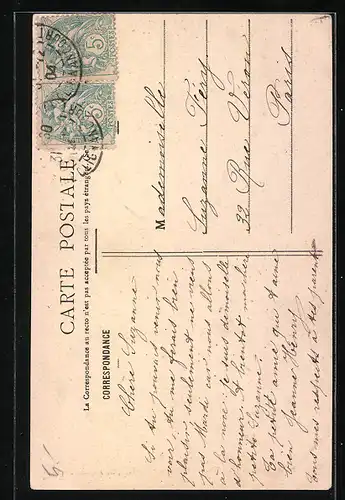 CARTE POSTALE
La Correspondance au recto n'est pas acceptée par tous les pays étrangers
CORRESPONDANCE
Chère Suzanne
Si tu pouvais venir nous
voir tu me ferais bien
plaisir seulement ne viens
pas Mardi car nous allons
à la noce je suis demoiselle
d'honneur. A bientôt ma chère
petite Suzanne.
Ta petite amie qui t'aime
bien Jeanne Henry
Tous mes respects à tes parents
Mademoiselle
Suzanne
32 Rue Véron
Paris
5
5